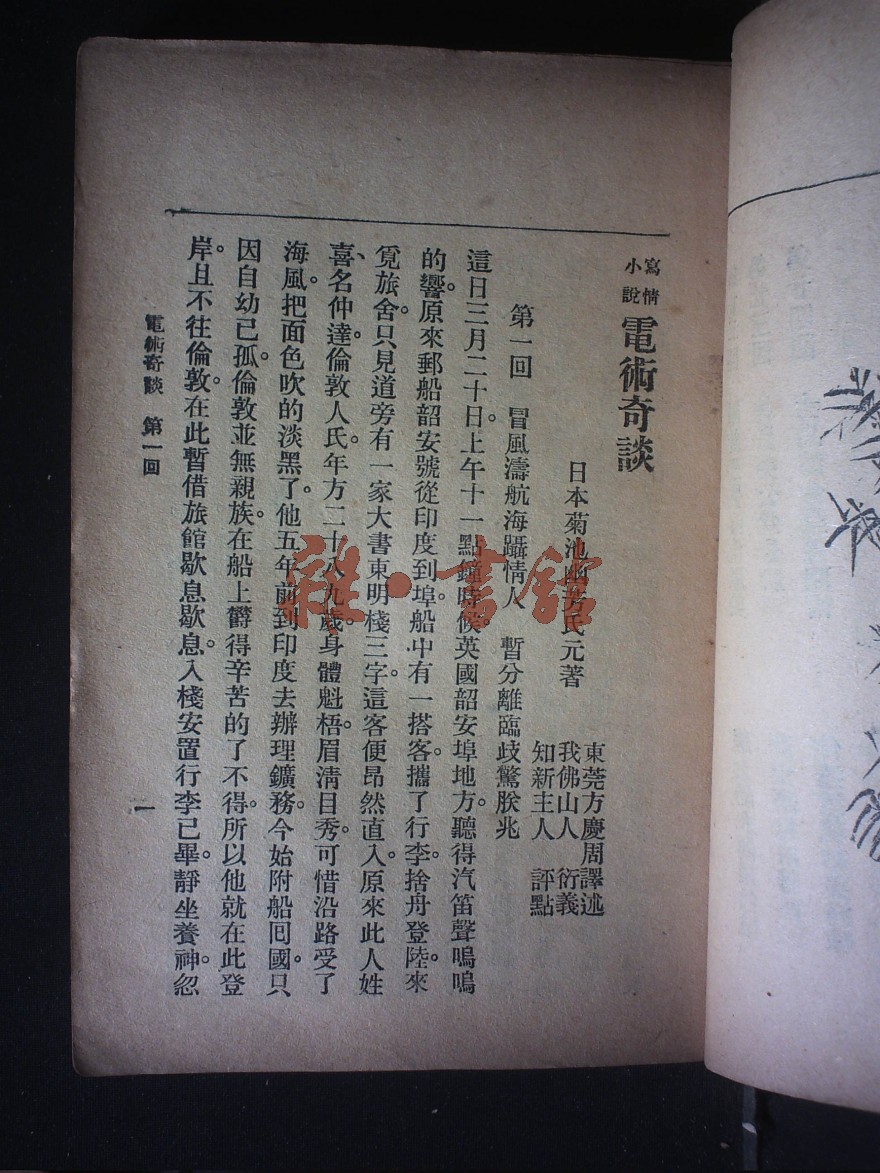 寫情小說
電術奇談
日本菊池幽芳氏元著
東莞方慶周譯述
我佛山人 衍義
知新主人 評點
第一回 冒風濤航海躡情人 暫分離臨歧驚朕兆
這日三月二十日。上午十一點鐘時候。英國韶安埠地方。聽得汽笛聲嗚嗚
的響。原來郵船韶安號從印度到埠。船中有一搭客。攜了行李。捨舟登陸。來
覓旅舍。只見道旁有一家大書東明棧三字。這客便昂然直入。原來此人姓
喜、名仲達。倫敦人氏。年方二十八九歲。身體魁梧。眉清目秀。可惜沿路受了
海風。把面色吹的淡黑了。他五年前到印度去辦理鑛務。今始附船囘國。只
因自幼已孤。倫敦並無親族。在船上欝得辛苦的了不得。所以他就在此登
岸。且不往倫敦。在此暫借旅館歇息歇息。入棧安置行李已畢。靜坐養神。忽
電術奇談 第一回
一
雜·書館